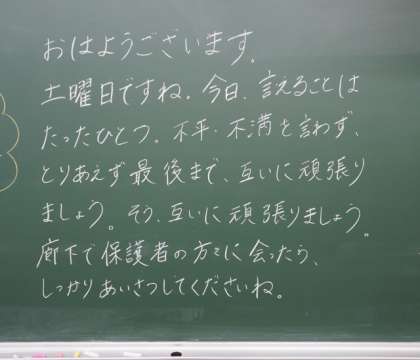 おはようございます。
土曜日ですね。今日、言えることは
たったひとつ。不平・不満を言わず、
とりあえず最後まで、互いに頑張り
ましょう。そう、互いに頑張りましょう。
廊下で保護者の方々に会ったら、
しっかりあいさつしてくださいね。